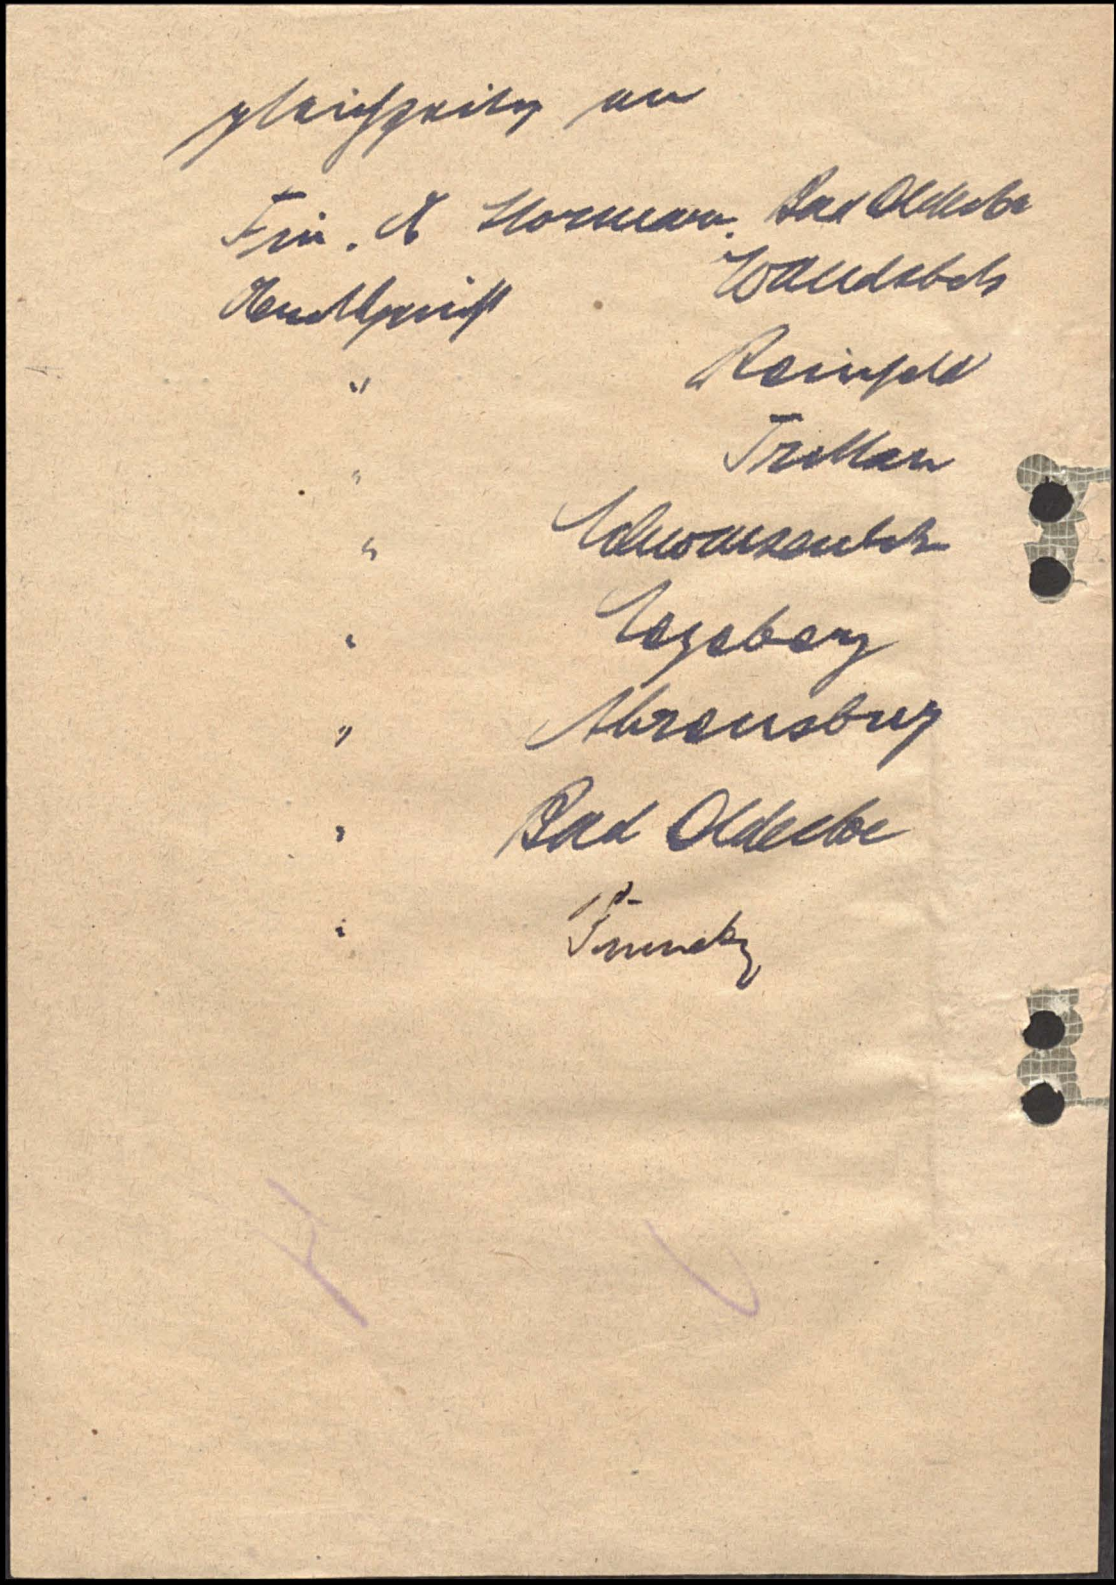 gleichzeitig an
Fin. A Stormarn. Bad Oldesloe
Amtsgericht Wandsbek
" Reinfeld
" Trittau
" Schwarzenbek
" Segeberg
" Ahrensburg
" Bad Oldesloe
"